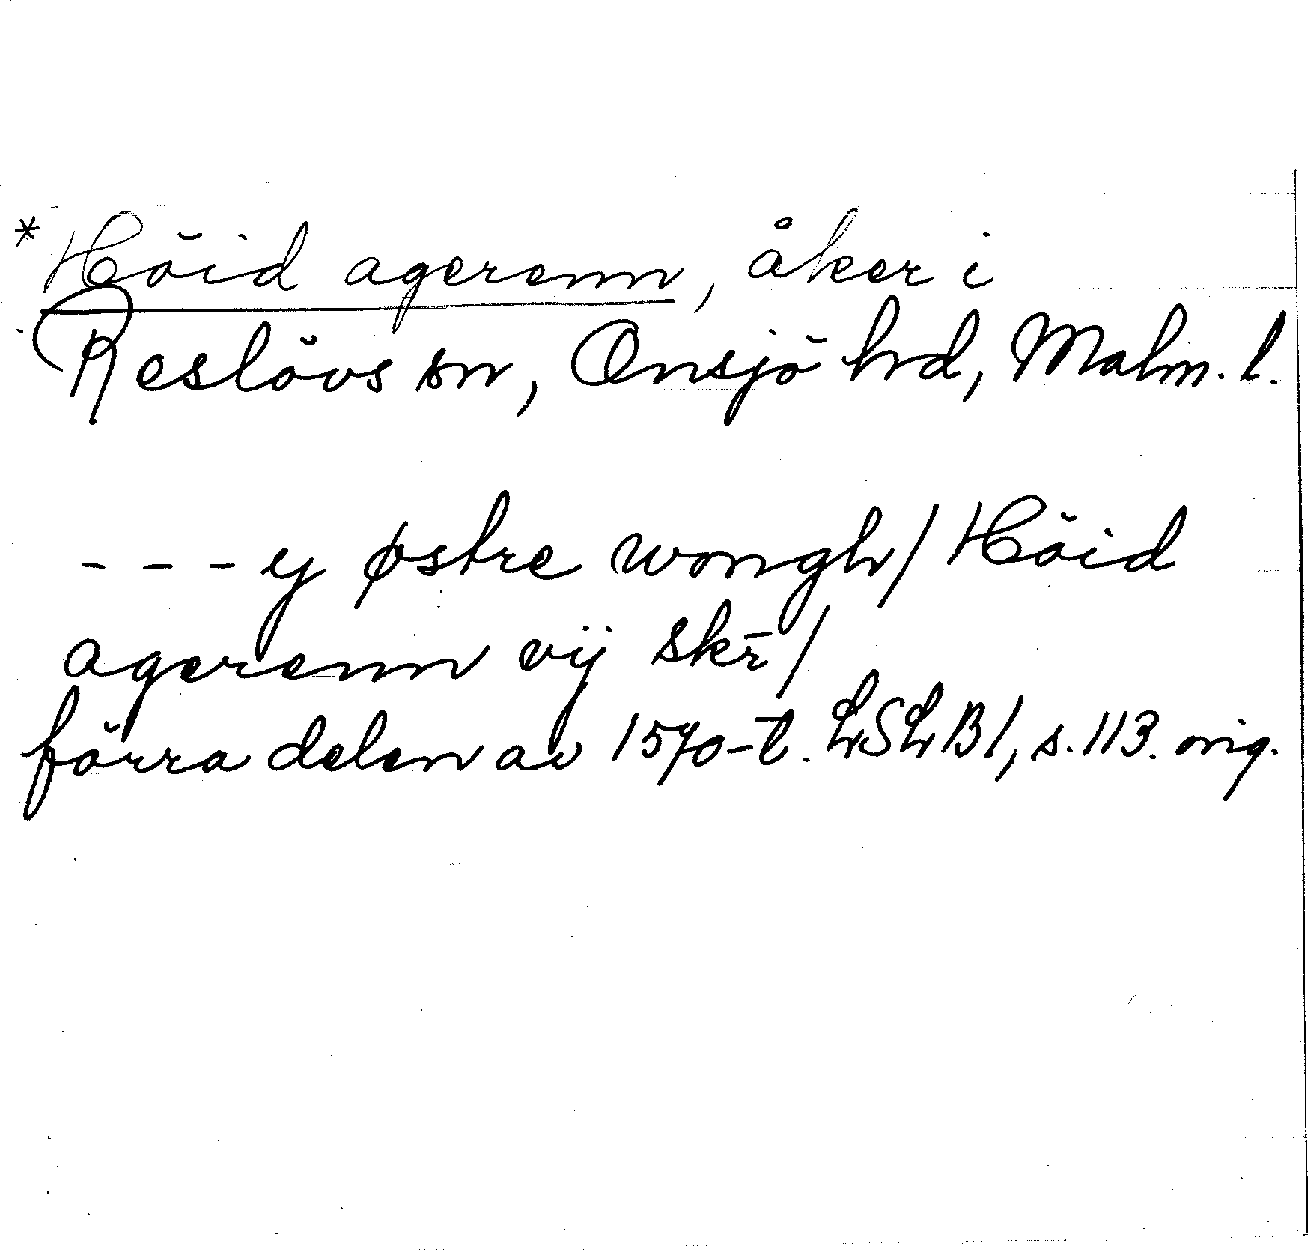 *Höid agerenn, åker i
Reslövs sn, Onsjö hrd, Malm. l.
---y østre wongh/ Höid
agerenn vij skr̄/
förra delen av 1570-t. LSLB1, s.113. orig.